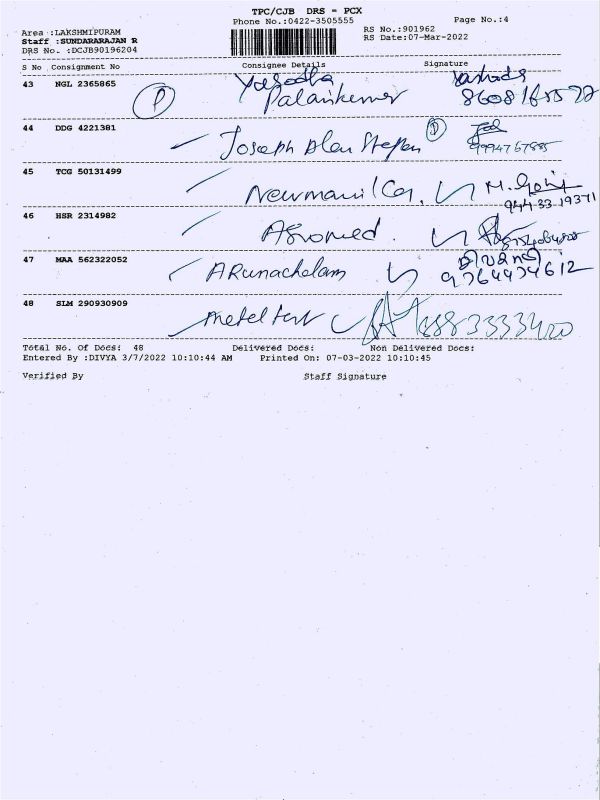 TPC/CJB DRS - PCX
Phone No.:0422-3505555
Page No.:4
Area :LAKSHMIPURAM
RS No.:901962
Staff :SUNDARARAJAN R
RS Date:07-Mar-2022
DRS No. :DCJB90196204
S No Consignment No Consignee Details Signature
43 NGL 2365865 Yasodha
Palanikumar
P
44 DDG 4221381 Joseph Alen Stepen P
45 TCG 50131499 M. Gopi
944 33 19371
46 HSR 2314982
47 MAA 562322052 ARunachalam
48 SLM 290930909
Total No. Of Docs: 48 Delivered Docs: Non Delivered Docs:
Entered By :DIVYA 3/7/2022 10:10:44 AM Printed On: 07-03-2022 10:10:45
Verified By Staff Signature